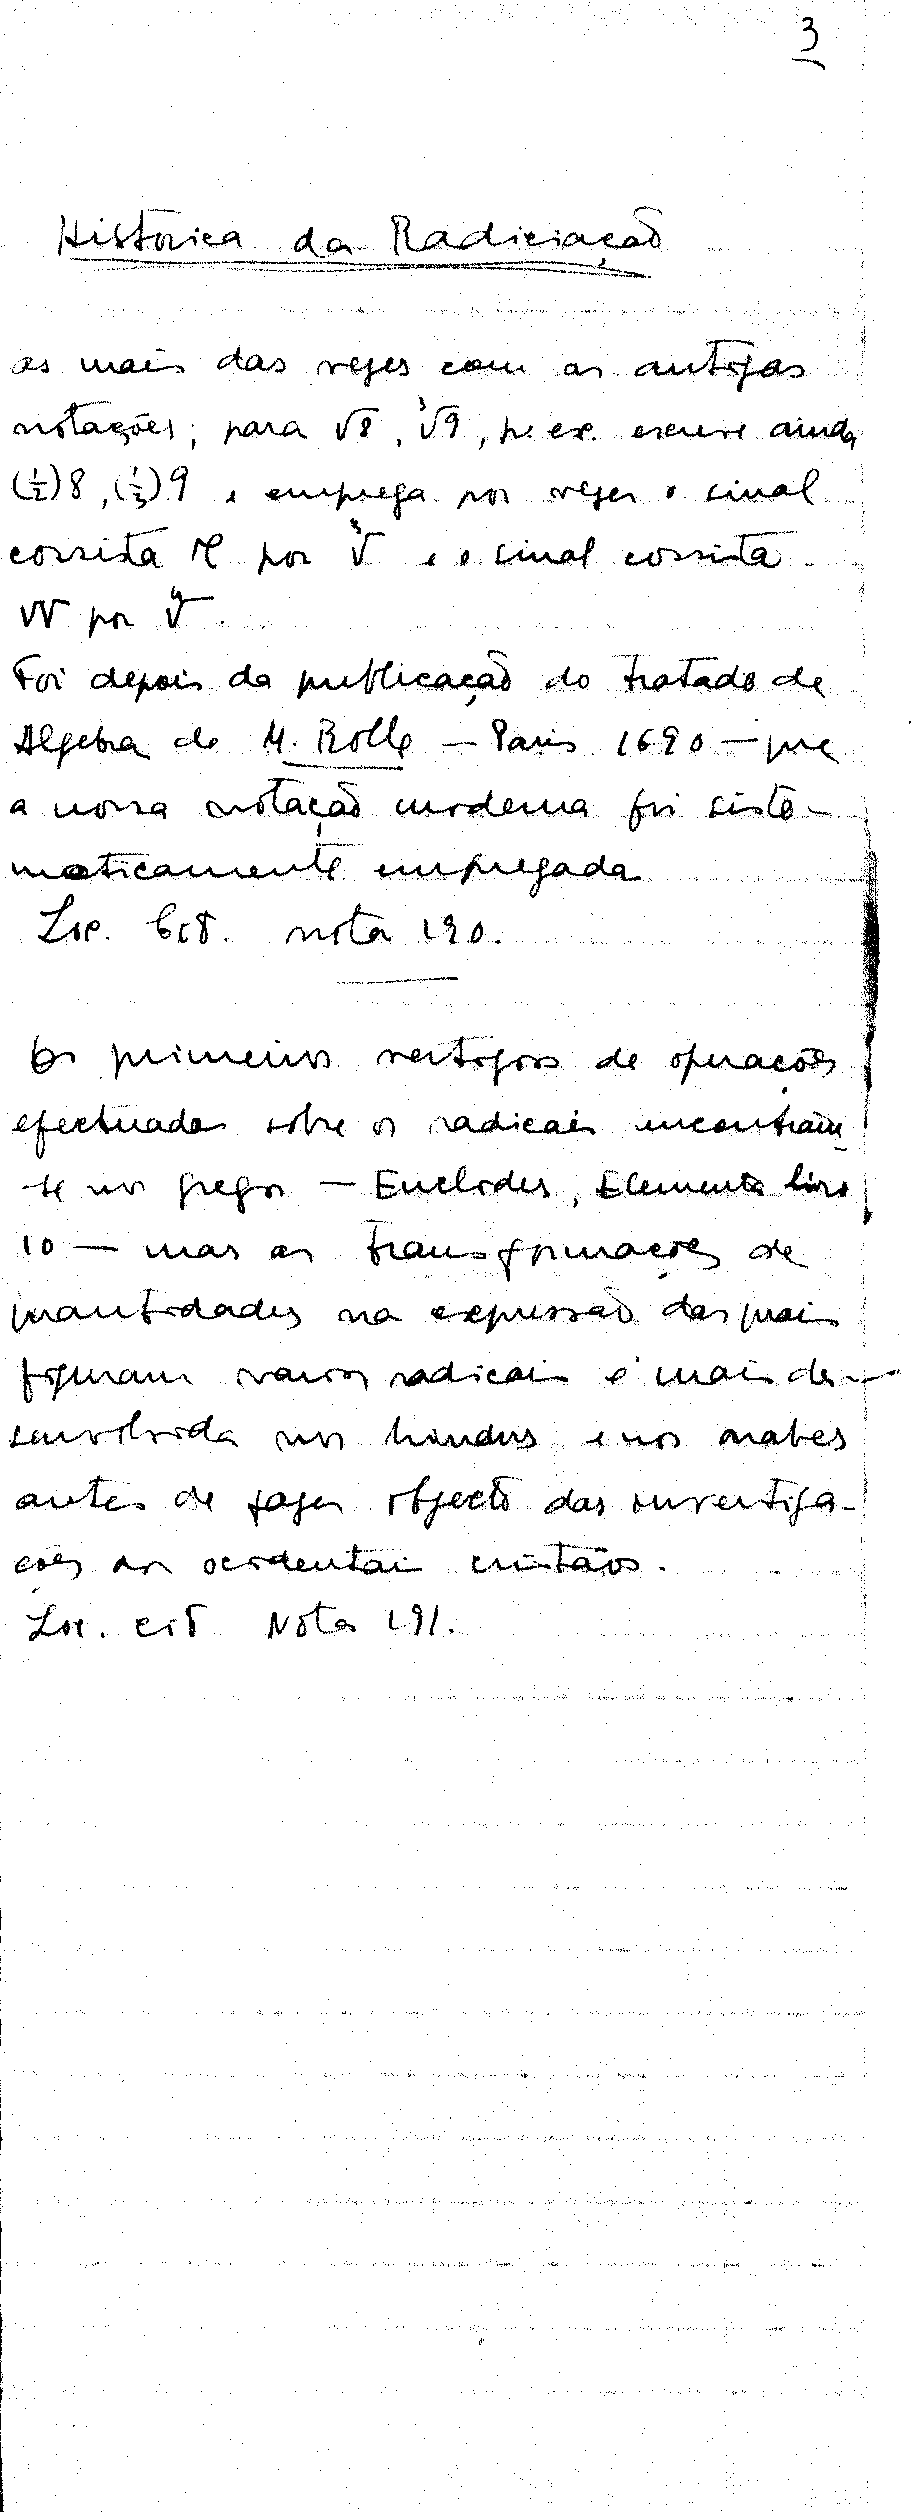 3
Histórica da Radiciação
as mais das vezes com as antigas
notações; para √8, ∛9, p. ex. escreve ainda
(½)8, (⅓)9 e emprega por vezes o sinal
cossista por ∛ e o sinal cossista
VV por ∜
Foi depois da publicação do tratado de
Algebra de M. Rolle — Paris 1690 — que
a nossa notação moderna foi siste-
maticamente empregada
Loc. Cit. nota 190.
Os primeiros vestigios de operações
efectuadas sobre os radicais encontram-
se nos gregos — Euclides, Elementos livro
10 — mas as transformações de
quantidades na expressão das quais
figuram varios radicais é mais de-
senvolvida nos hindus e nos arabes
antes de fazer objecto das investiga-
ções dos ocidentais cristãos.
Loc. cit Nota 191.